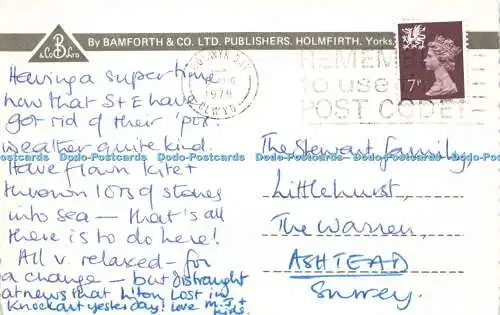 & Co B LTD
By BAMFORTH & CO. LTD. PUBLISHERS. HOLMFIRTH, Yorks,
1979
CLWYD
REMEMBER
to use
POST CODE
7P
Having a super time
now that S + E have
got rid of their 'pox'.
Weather quite kind.
Have flown kite +
thrown lots of stones
into sea – that's all
there is to do here!
All v. relaxed – for
a change – but distraught
at news that Luton Lost in
Knockout yesterday! Love M, J +
kids.
The Stewart Family,
Littlehurst,
The Warren,
ASHTEAD
Surrey.
Dodo-Postcards Dodo-Postcards Dodo-Postcards Dodo-Postcards Dodo-Postcards Dodo-Postcards